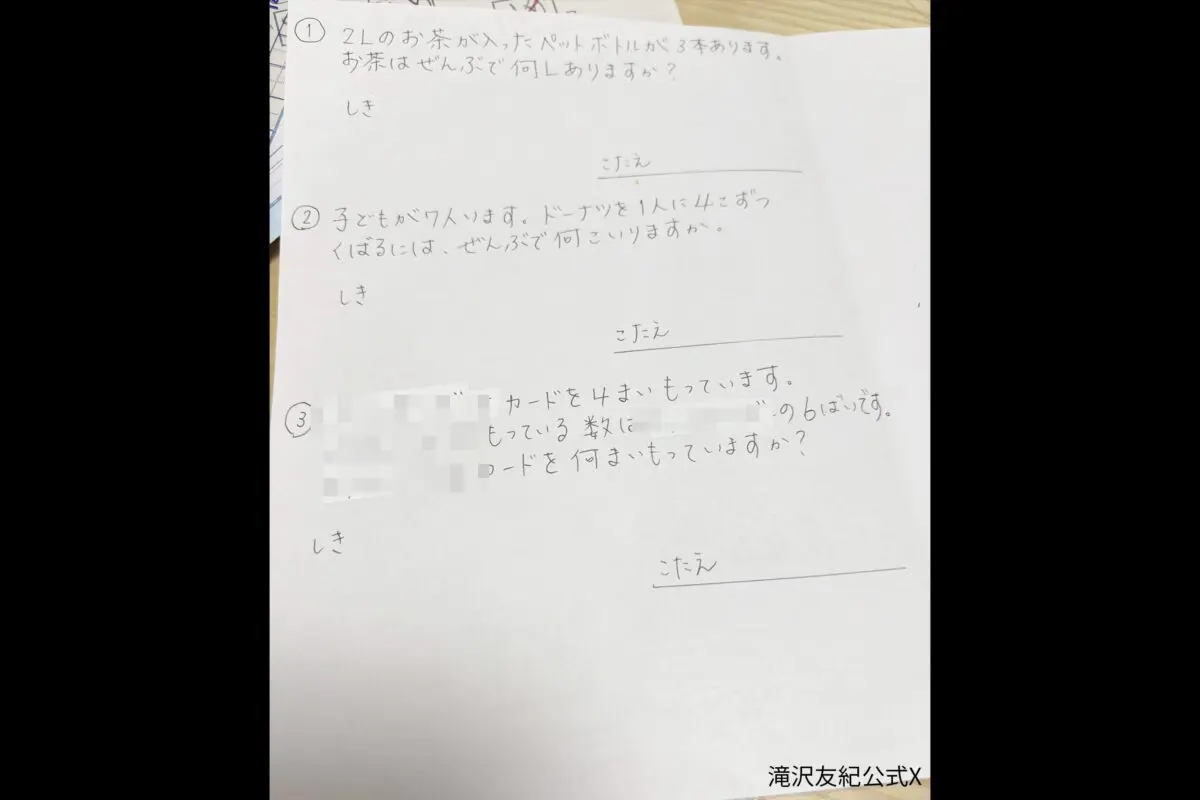 ① 2Lのお茶が入ったペットボトルが3本あります。
お茶はぜんぶで何Lありますか?
しき
こたえ
② 子どもが7人います。ドーナツを1人に4こずつ
くばるには、ぜんぶで何こいりますか。
しき
こたえ
③ カードを4まいもっています。
もっている数は の6ばいです。
ードを何まいもっていますか?
しき
こたえ
滝沢友紀公式X